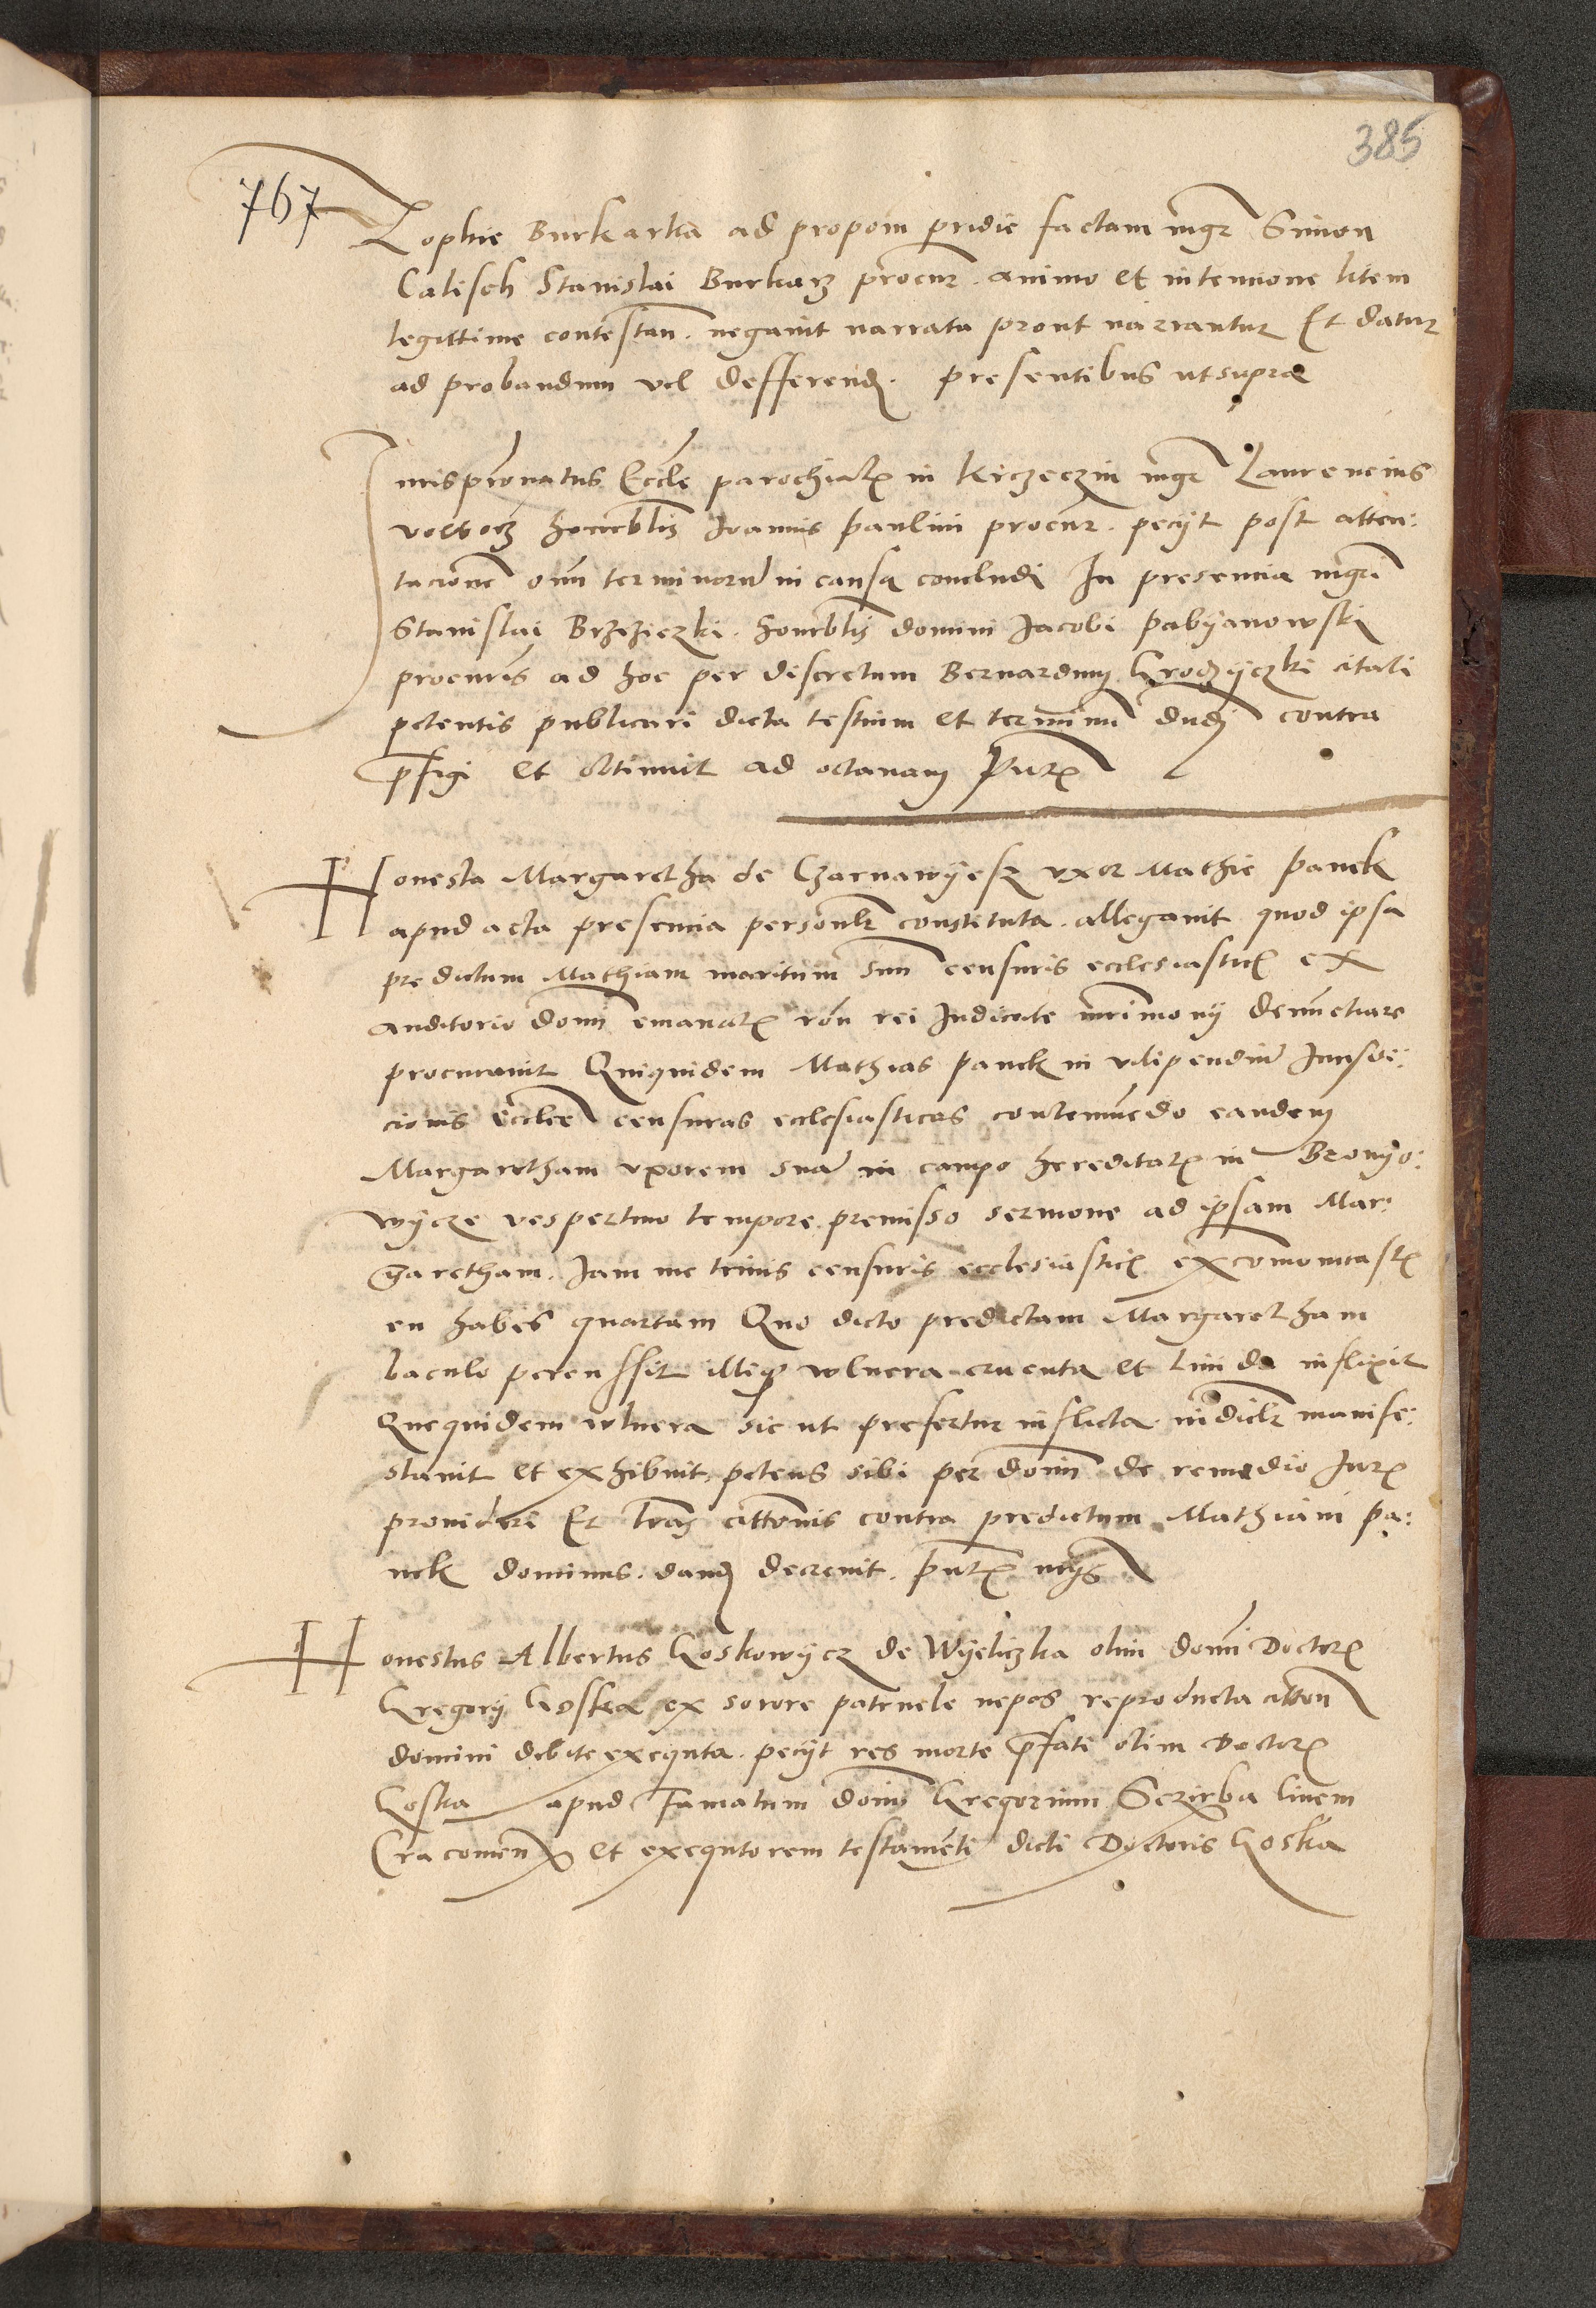 385
767
Zophie Burkarka ad propom pridie factam mgr Simon
Calisch Stanislai Burkarz procur. animo et intencione litem
legittime contestan. negavit narrata prout narrantur Et datur
ad probandum vel defferend. presentibus ut supra
Jurispronatus Eccle parochialis in Krczeczin mgr Laurencius
honrblis Joannis Paulini procur. pecyt post atten:
tacione omn terminorum in causa concludi In presencia mgri
Stanislai Brzeziczki. honrblis domini Jacobi Pabyanowski
procuris ad hoc per discretum Bernardum Grodzyczki citati
petentis publicari dicta testium et terminum dnd contra
prfigi et obtinuit ad octavam Pntz
Honesta Margaretha de Czarnawyesz uxor Mathie Panek
apud acta presencia personlr constituta. allegavit quod ipsa
predictum Mathiam maritum suum censuris ecclesiasticz ex
auditorio domi emanatz ron rei Judicate mrimony denunctiare
procuravit Quiquidem Mathias panek in vilipendium Jurisdi:
cionis ecclee censuras ecclesiasticas contemnendo eandem
Margaretham uxorem suam in campo hereditatz in Bronyo:
wycze vespertino tempore premisso sermone ad ipsam Mar:
garetham. Jam me trinis censuris ecclesiasticz excomonicastz
en habes quartam Quo dicto predictam Margaretham
baculo percussit illiq vulnera cruenta et livida inflixit
Quequidem vulnera sic ut prefertur inflicta. iudiclr manife:
stavit et exhibuit. petens sibi per domi de remedio Jurz
provideri Et lras cittonis contra predictum Mathiam pa:
nek dominus. dand decrevit. pntz ut supra
Honestus Albertus Goskowycz de Wyeliczka olim domi Doctorz
Gregorij Goska ex sorore patruele nepos reproducta citton
domini debite exequta. pecyt res morte prfati olim Doctorz
Goska apud famatum domi Gregorium Sczirba Civem
Cracovien et exequtorem testamenti dicti Doctoris Goska